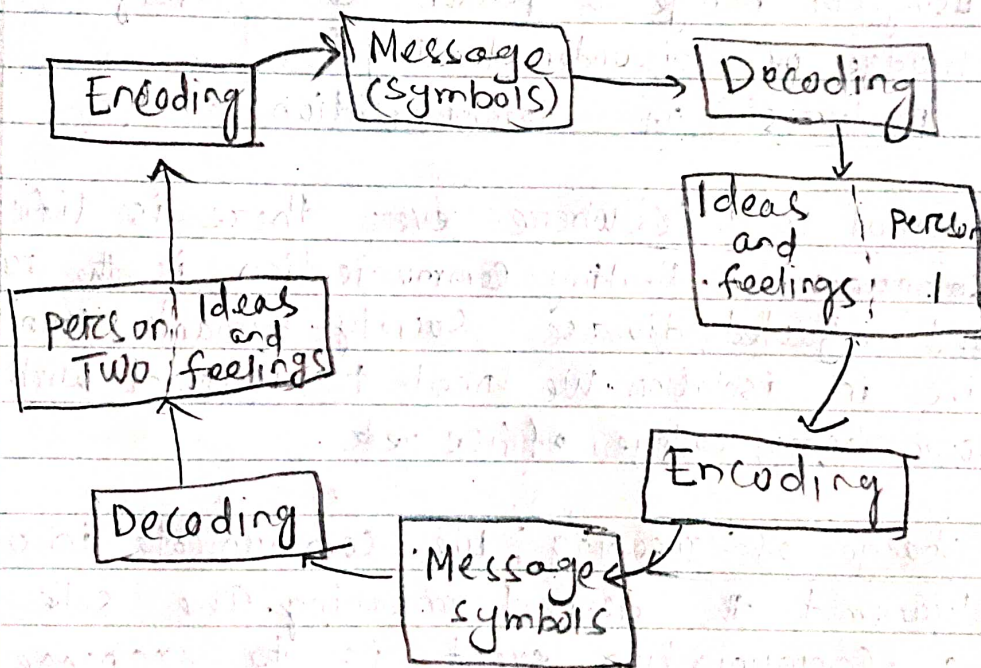 Encoding
Message
(Symbols)
Decoding
Ideas
and
feelings
Person
1
Encoding
Message
symbols
Decoding
Person
TWO
Ideas
and
feelings